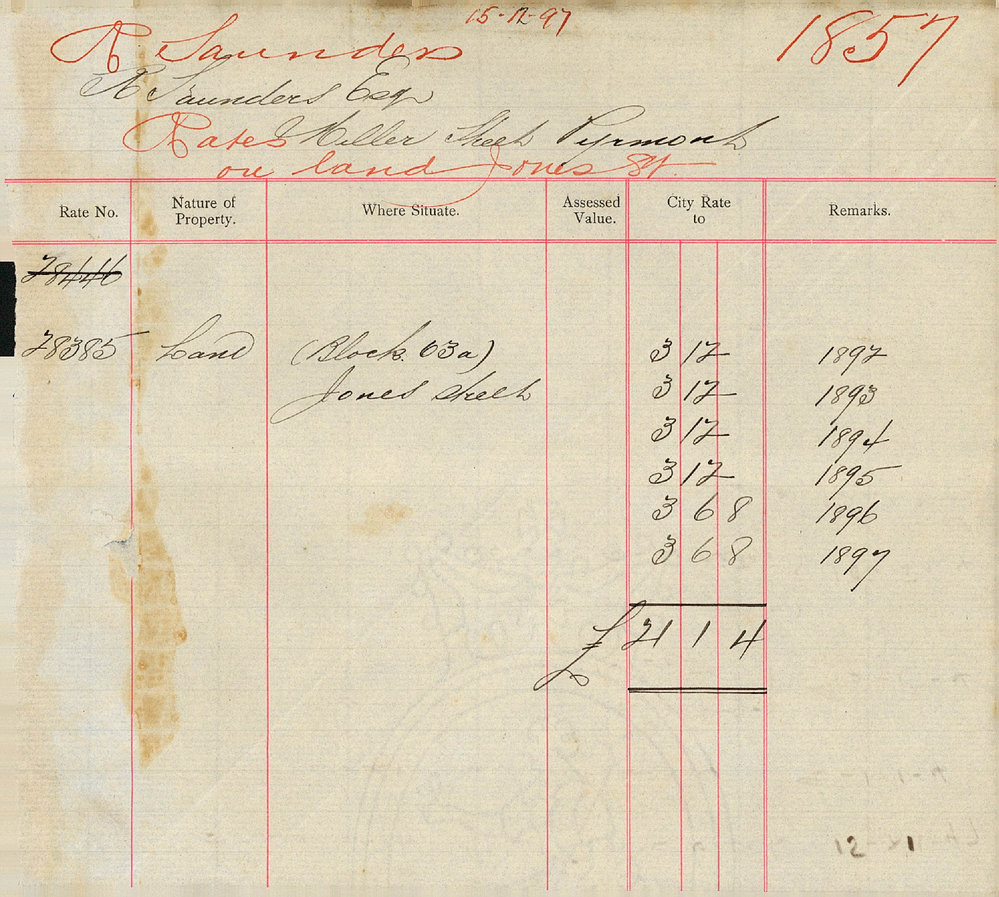 15-12-97
R Saunders
1857
R Saunders Esqr
Rates Miller Street Pyrmont
on land Jones St.
Rate No. Nature of Property. Where Situate. Assessed Value. City Rate to Remarks.
78446
78385 Land (Block 63a) 3 12 — 1892
Jones Street 3 12 — 1893
3 12 — 1894
3 12 — 1895
3 6 8 1896
3 6 8 1897
£ 21 1 4